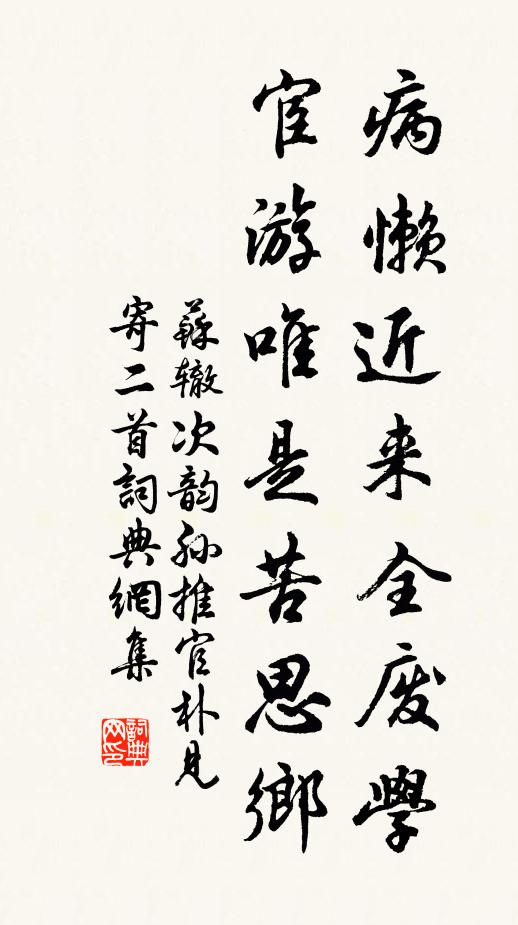 病懒近来全废學
宦游唯是苦思鄉
蘇辙次韵孙推官朴見
寄二首詞典網集
詞典网印